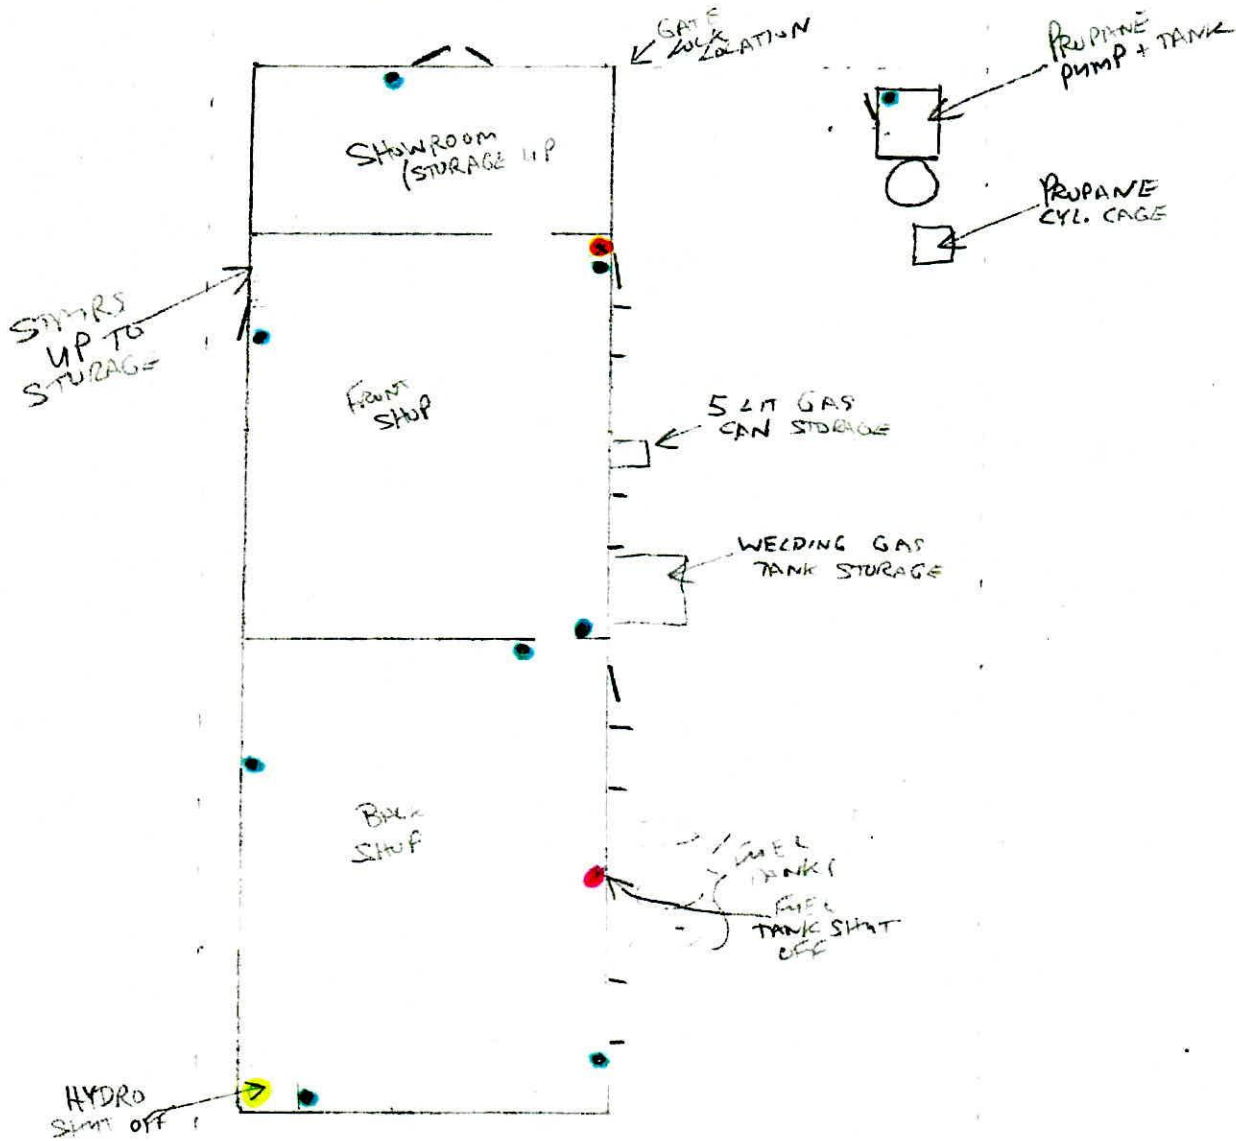 GATE
LOCK
LOCATION
PROPANE
PUMP + TANK
SHOWROOM
(STORAGE UP
PROPANE
CYL. CAGE
STAIRS
UP TO
STORAGE
FRONT
SHOP
5 LIT GAS
CAN STORAGE
WELDING GAS
TANK STORAGE
BACK
SHOP
FUEL
TANKS
FUEL
TANK SHUT
OFF
HYDRO
SHUT OFF